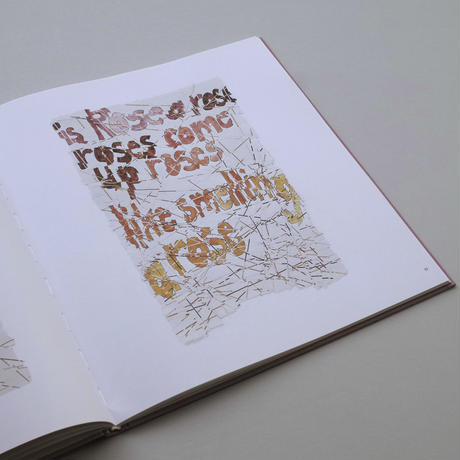 is Rose a rose
roses come
up roses
like smelling
a rose